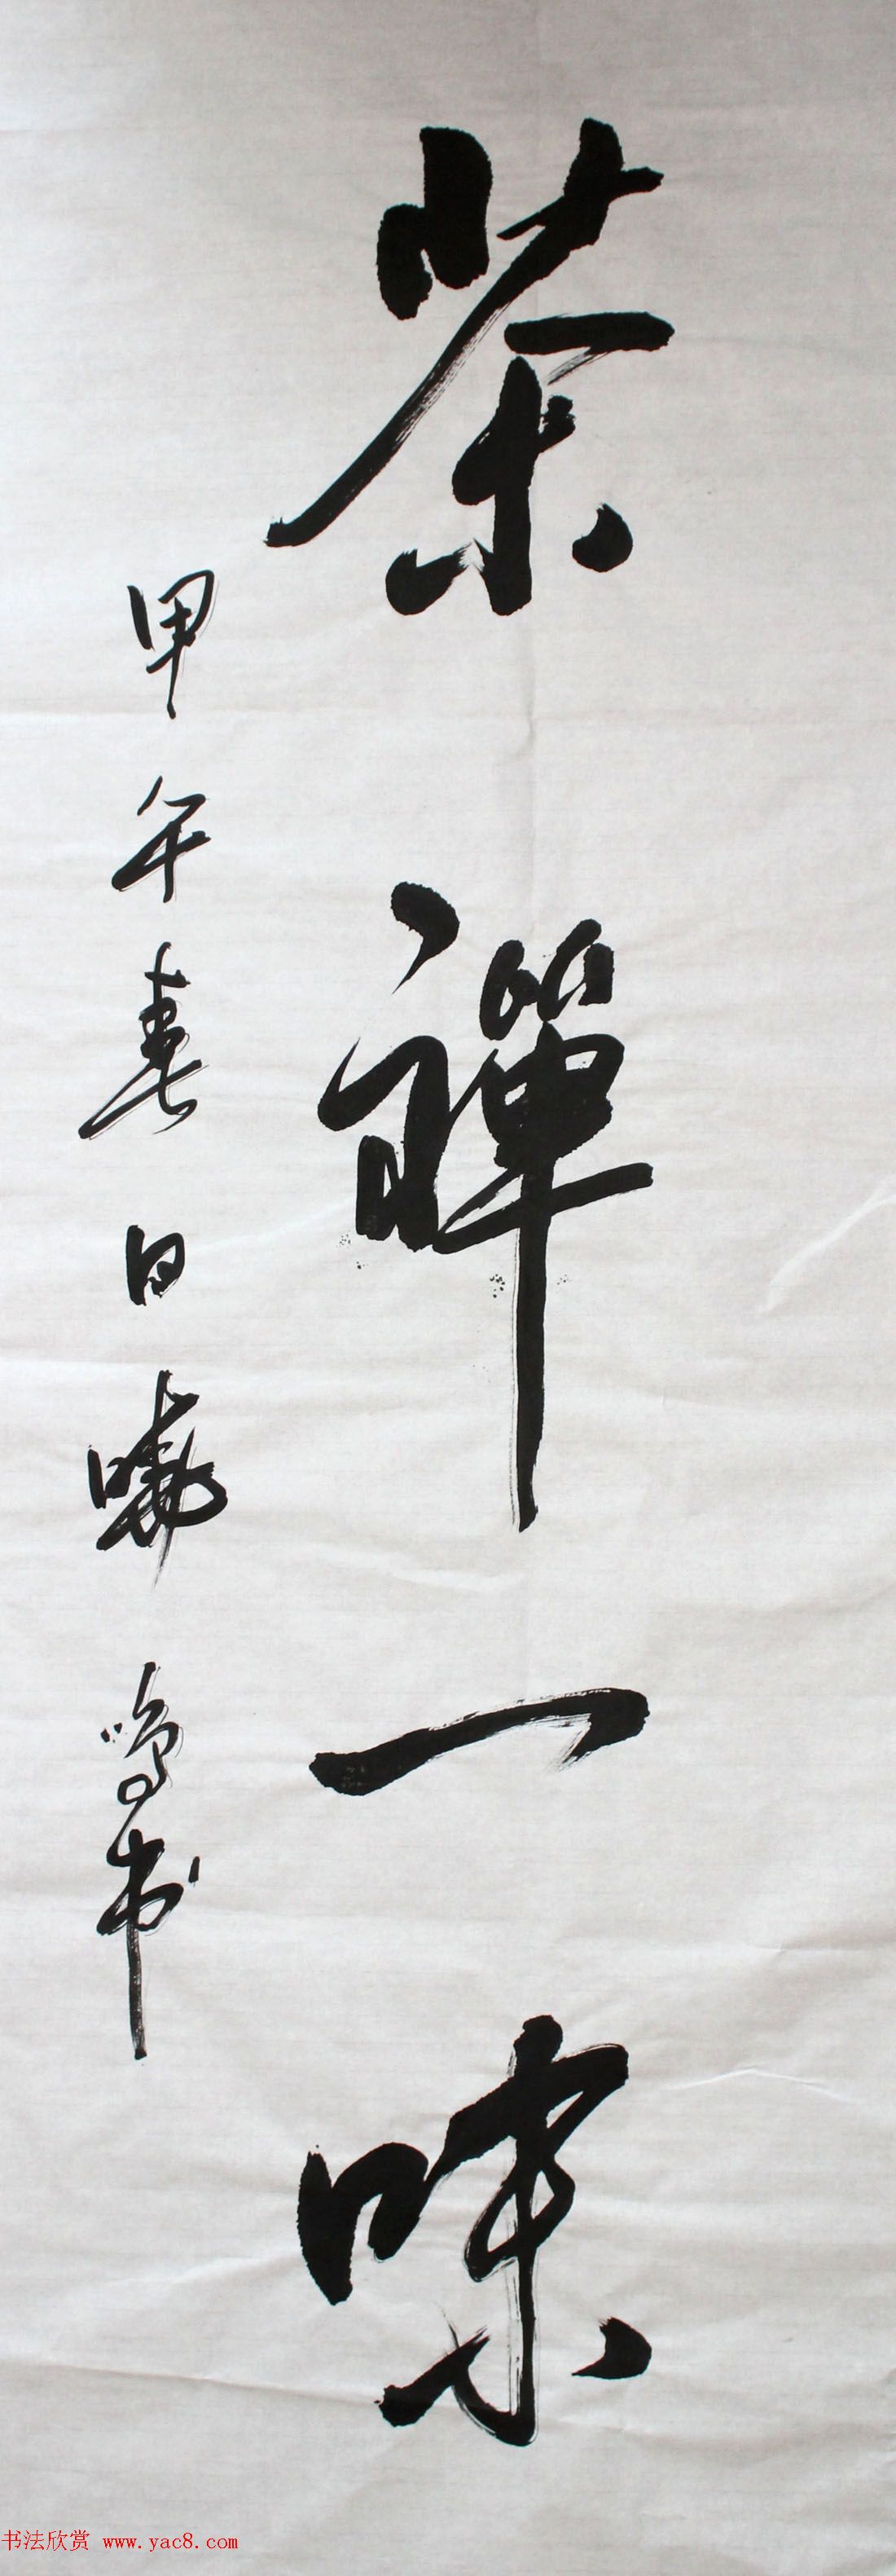 茶禪一味
甲午春日晓鸣书
书法欣赏 www.yac8.com